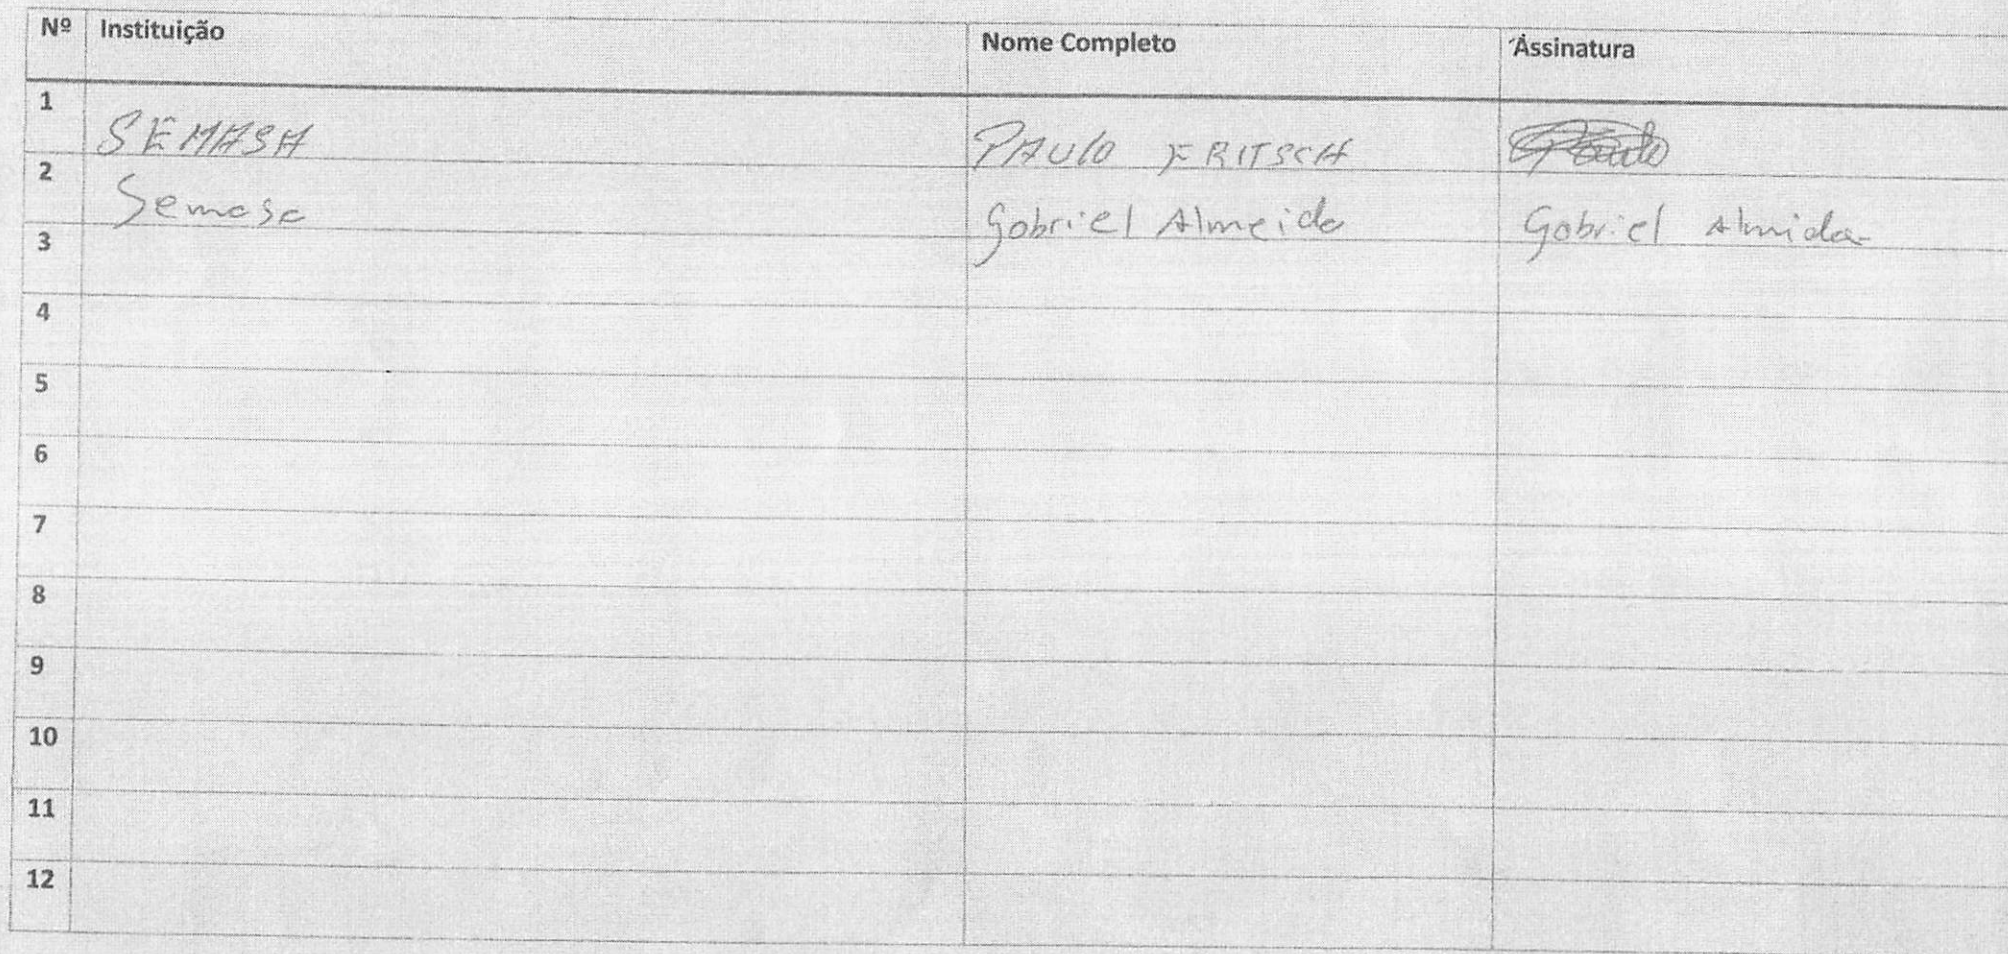 Nº Instituição Nome Completo Assinatura
1 SEMASA PAULO FRITSCH
2 Semasa Gabriel Almeida Gabriel Almida
3
4
5
6
7
8
9
10
11
12